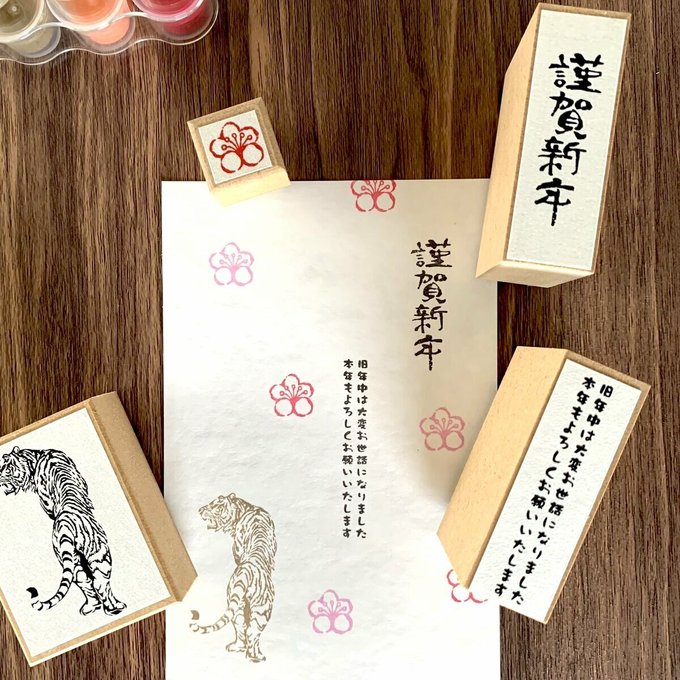 謹賀新年
旧年中は大変お世話になりました
本年もよろしくお願いいたします
謹賀新年
旧年中は大変お世話になりました
本年もよろしくお願いいたします